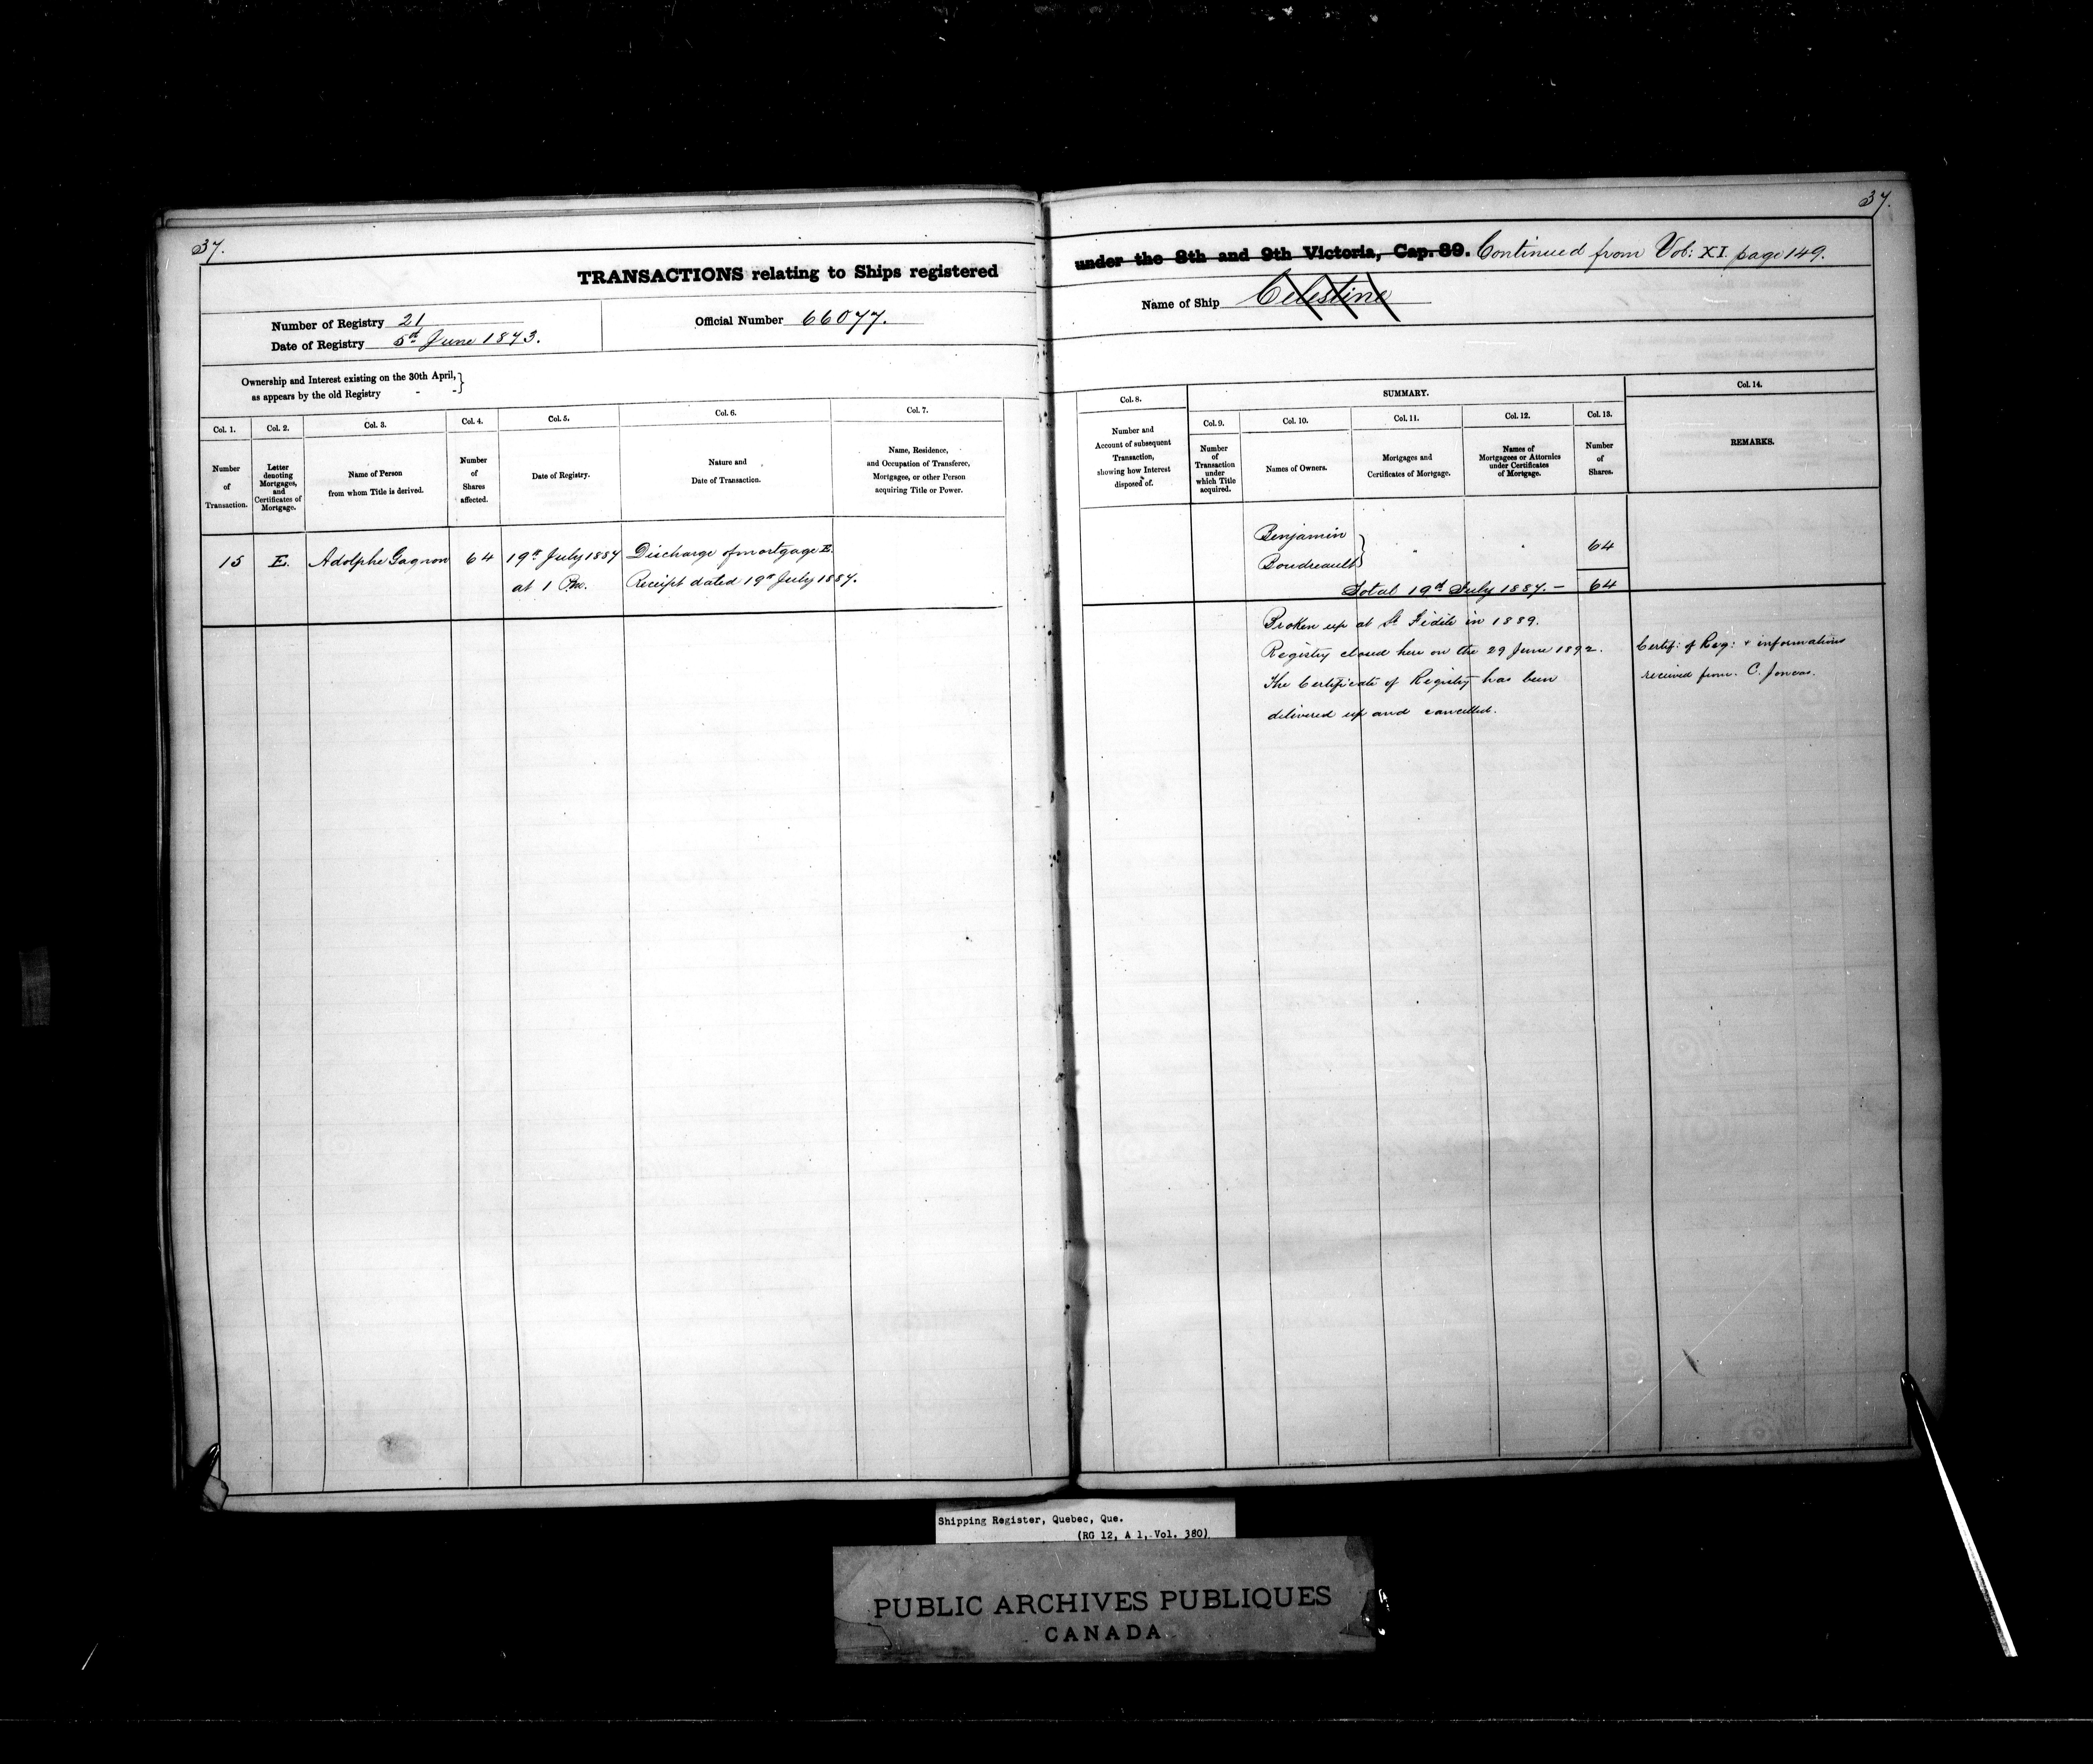 37.
37.
TRANSACTIONS relating to Ships registered
under the 8th and 9th Victoria, Cap. 89. Continued from Vol: XI. page 149.
Number of Registry 21
Date of Registry 5th June 1873.
Official Number 66077.
Name of Ship Celestine
Ownership and Interest existing on the 30th April,
as appears by the old Registry
Col. 1.
Number
of
Transaction.
Col. 2.
Letter
denoting
Mortgages,
and
Certificates of
Mortgage.
Col. 3.
Name of Person
from whom Title is derived.
Col. 4.
Number
of
Shares
affected.
Col. 5.
Date of Registry.
Col. 6.
Nature and
Date of Transaction.
Col. 7.
Name, Residence,
and Occupation of Transferee,
Mortgagee, or other Person
acquiring Title or Power.
Col. 8.
Number and
Account of subsequent
Transaction,
showing how Interest
disposed of.
SUMMARY.
Col. 9.
Number
of
Transaction
under
which Title
acquired.
Col. 10.
Names of Owners.
Col. 11.
Mortgages and
Certificates of Mortgage.
Col. 12.
Names of
Mortgagees or Attornies
under Certificates
of Mortgage.
Col. 13.
Number
of
Shares.
Col. 14.
REMARKS.
15 E. Adolphe Gagnon 64 19th July 1887 Discharge of mortgage E.
at 1 P.m. Receipt dated 19th July 1887.
Benjamin
Boudreault
64
Total 19th July 1887. — 64
Broken up at St Fidele in 1889.
Registry closed here on the 29 June 1892.
The Certificate of Registry has been
delivered up and cancelled.
Certif: of Reg: & informations
received from C. Joncas.
Shipping Register, Quebec, Que.
(RG 12, A 1, Vol. 380)
PUBLIC ARCHIVES PUBLIQUES
CANADA